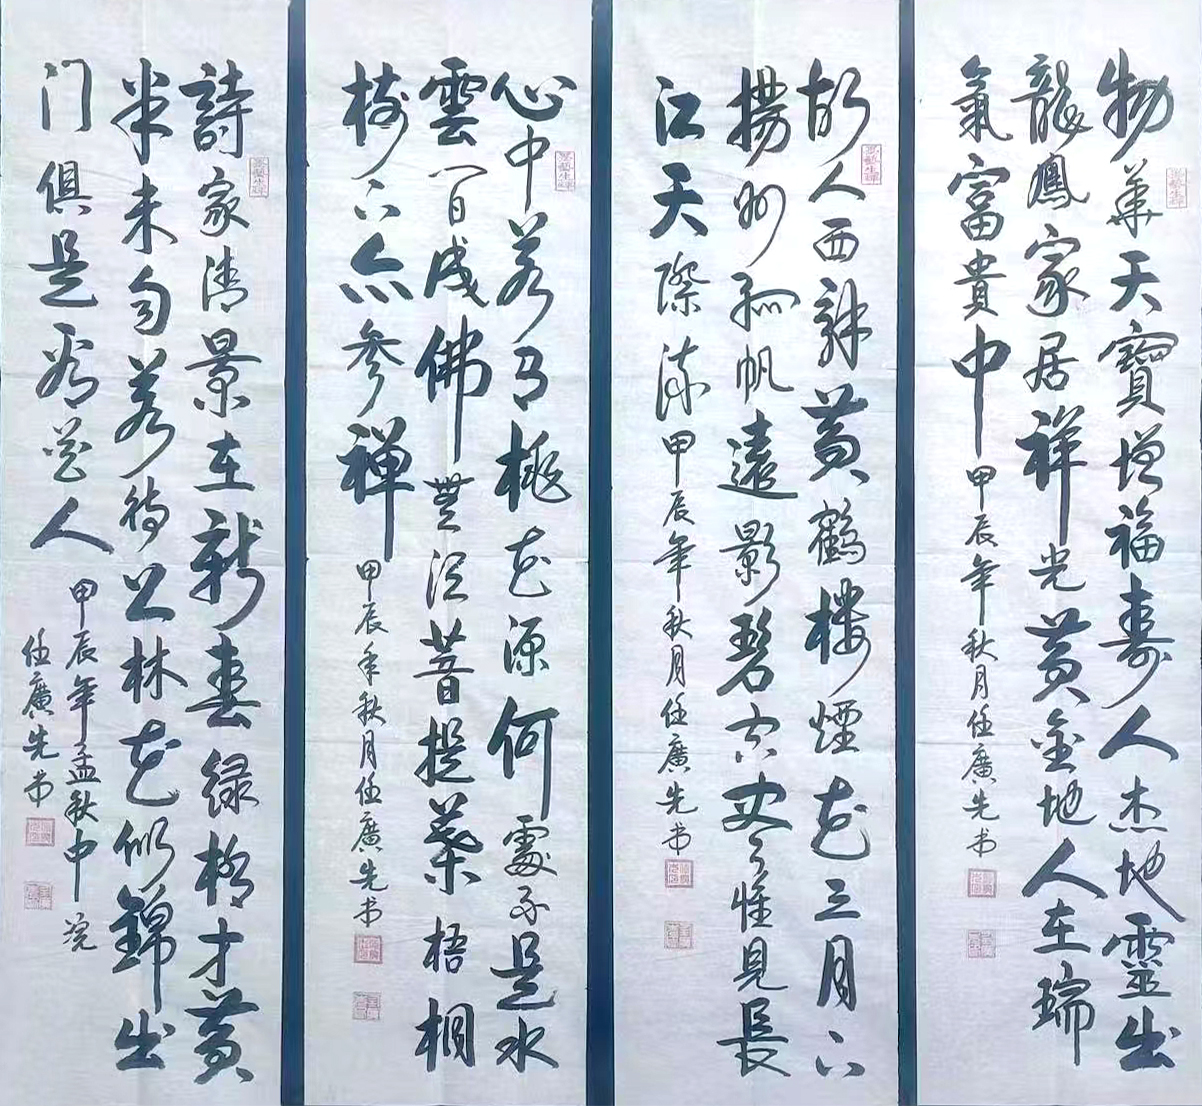 物華天寶增福壽人杰地靈出
龍鳳家居祥光黄金地人在瑞
氣富貴中 甲辰年秋月任廣先书
故人西辞黄鶴樓煙花三月下
揚州孤帆遠影碧空尽惟見長
江天際流 甲辰年秋月任廣先书
心中若有桃花源何處不是水
雲間成佛無須菩提葉梧桐
樹下亦参禅 甲辰年秋月任廣先书
詩家清景在新春緑柳才黄
半未匀若待上林花似錦出
门俱是看花人 甲辰年孟秋中浣
任廣先书